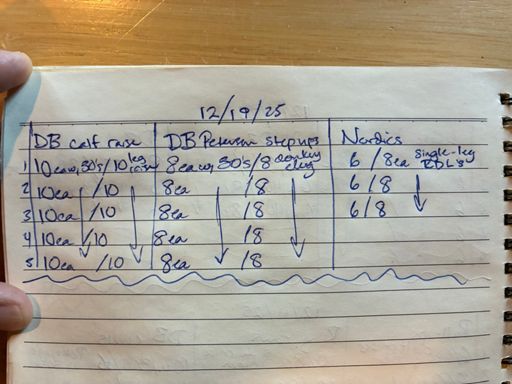 12/19/25
DB calf raise DB Peterson stepups Nordics
1 10ea w, 30's/10 leg raise 8ea w, 30's/8 donkey 6 / 8ea single-leg RDL's
2 10ea /10 8ea /8 6/8
3 10ea /10 8ea /8 6/8
4 10ea /10 8ea /8
5 10ea /10 8ea /8